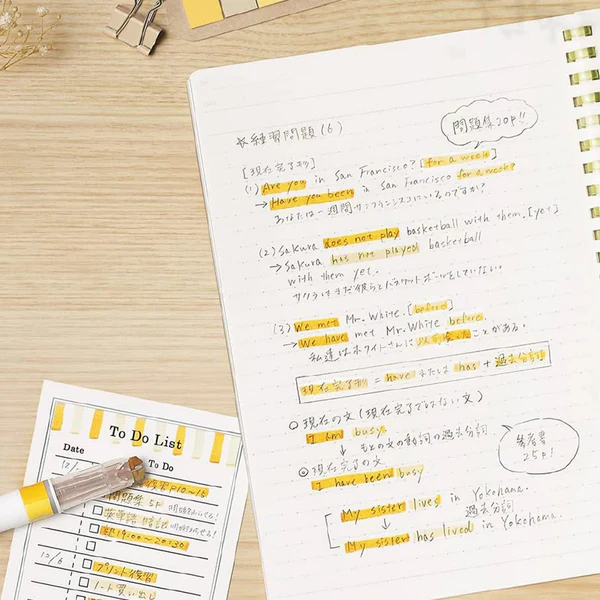 ☆練習問題(6)
問題集20P!!
[現在完了形]
(1) Are you in San Francisco? [for a week]
→ Have you been in San Francisco for a week?
あなたは一週間サンフランシスコにいるのですか?
(2) Sakura does not play basketball with them. [yet]
→ Sakura has not played basketball
with them yet.
サクラはまだ彼らとバスケットボールをしていない。
(3) We met Mr. White. [before]
→ We have met Mr. White before.
私達はホワイトさんに以前会ったことがある。
現在完了形 = have または has + 過去分詞
○現在の文(現在完了ではない文)
I am busy
↓ もとの文の動詞の過去分詞
◎現在完了の文
I have been busy
参考書
25P!
My sister lives in Yokohama.
↓ 過去分詞
My sister has lived in Yokohama.
To Do List
Date To Do
12/
P10~15
問題集 5P 明日わたせる!
英単語 暗記
19:00~20:30
12/6 プリント復習
ノート買い出し